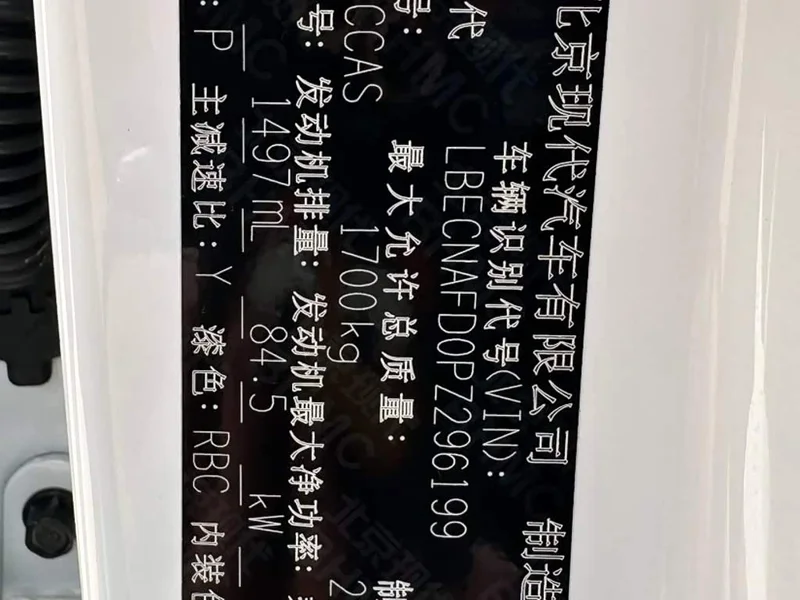 北京现代汽车有限公司 制造
代 车辆识别代号(VIN):
号: LBECNAFD0PZ296199
CCAS 最大允许总质量: 制
号: 1700kg 2
发动机排量: 发动机最大净功率:
P 1497mL 84.5 kW
主减速比: Y 漆色: RBC 内装色